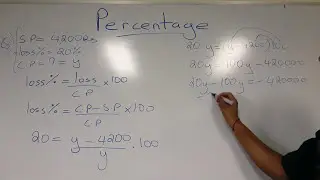 Percentage
SP = 4200Rs
loss% = 20%
CP = ? = y
loss% = loss/CP × 100
loss% = CP - SP/CP × 100
20 = y - 4200/y . 100
20y = (y - 4200) 100
20y = 100y - 420000
20y - 100y = - 420000